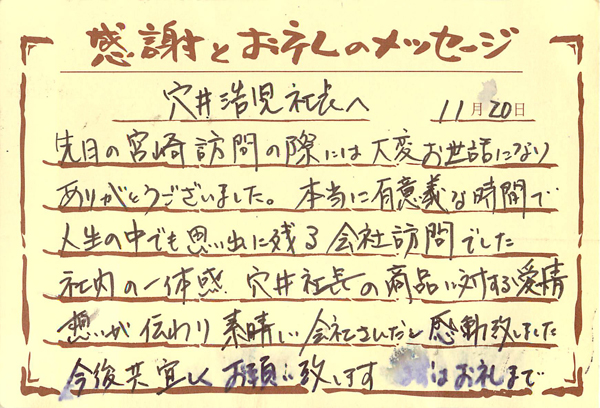 感謝とお礼のメッセージ
穴井浩児社長へ 11月20日
先日の宮崎訪問の際には大変お世話になり
ありがとうございました。本当に有意義な時間で
人生の中でも思い出に残る会社訪問でした
社内の一体感 穴井社長の商品に対する愛情
想いが伝わり素晴しい会社さんだと感動致しました
今後共宜しくお願い致します はお礼まで